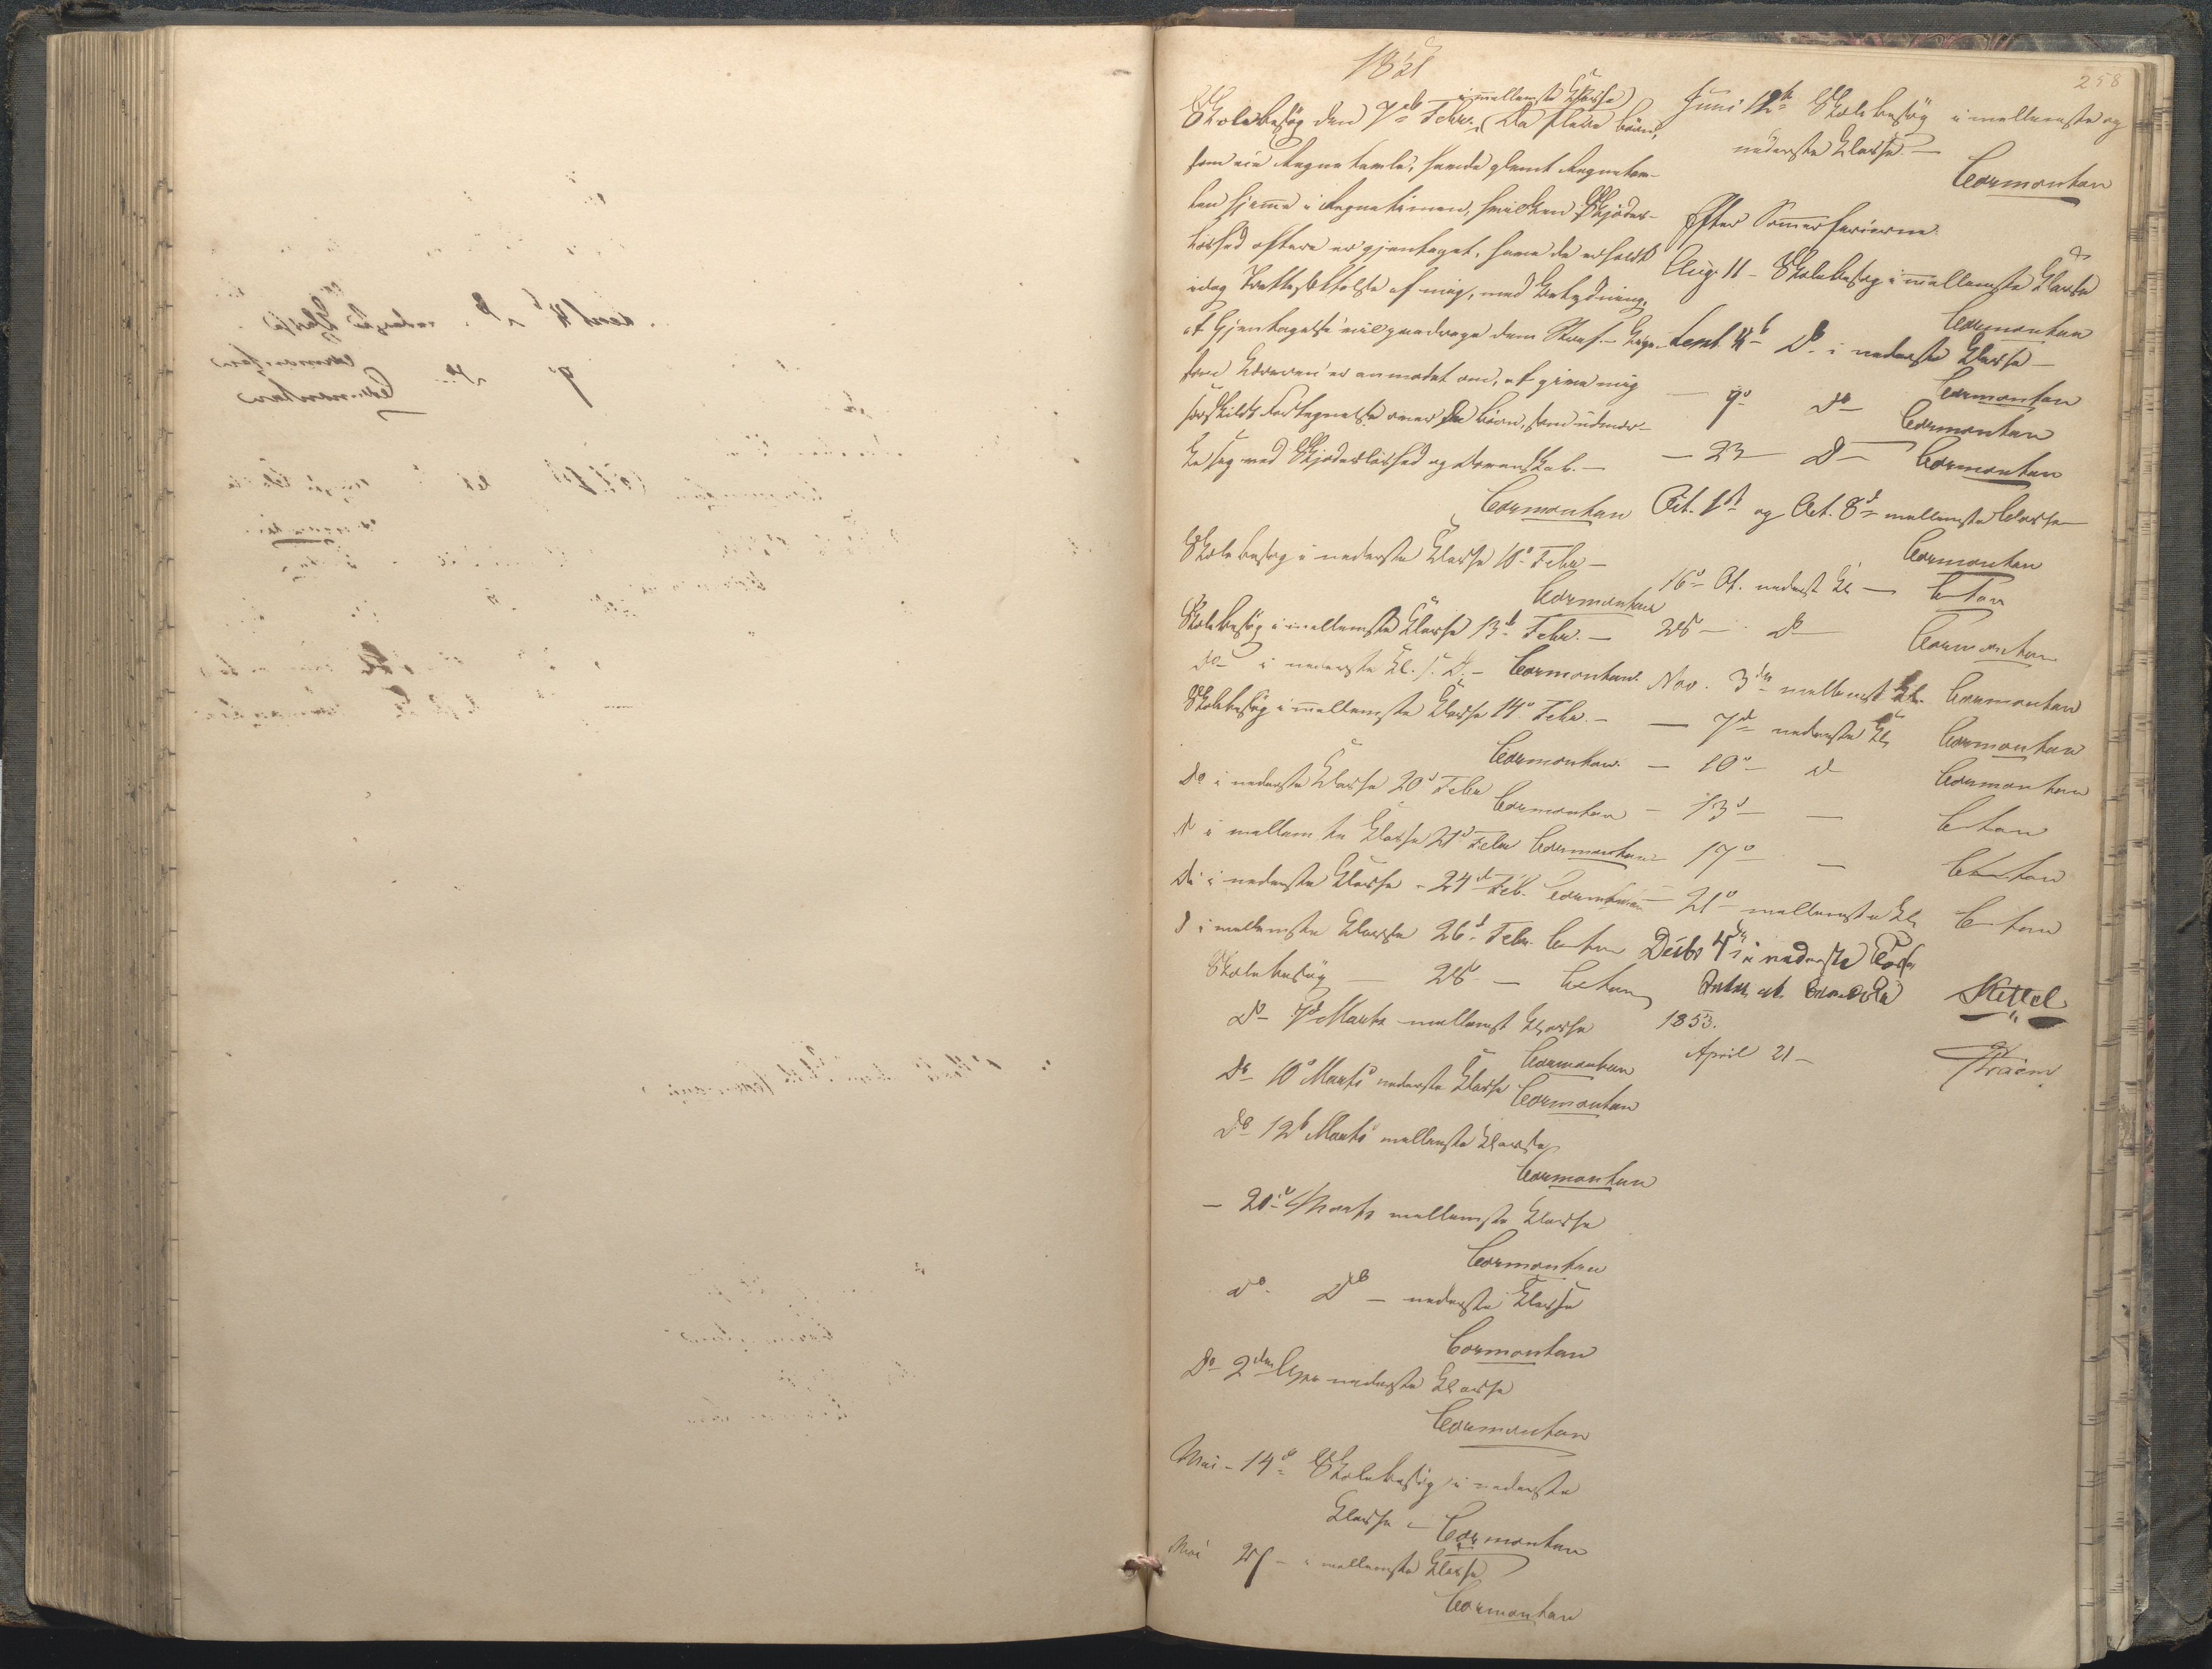 1851
258
i mellemste Klasse
Skolebesøg den 7de Febr. Da flere börn,
som eie Regnetavle, havde glemt Regnetav-
len hjemme i Regnetimen, hvilken Skjødes-
löshed oftere er gjentaget, have de erholdt
idag Irettesættelse af mig, med Betydning,
at Gjentagelse vil paadrage dem Straf.
Læreren er anmodet om, at give mig
særskilt Fortegnelse over de börn, som udmær-
ke sig ved Skjødesløshed og Dovenskab. —
Cormontan
Skolebesög i nederste Klasse 10d Febr —
Cormontan
Skolebesög i mellemste Klasse 13d Febr. —
do i nederste Kl. s. D. — Cormontan
Skolebesög i mellemste Klasse 14d Febr. —
Cormontan
Do i nederste Klasse 20d Febr
Cormontan
D i mellemste Klasse 21d Febr Cormontan
Do i nederste Klasse - 24d Feb. Cormontan
D i mellemste Klasse 26d Febr. Contan
Skolebesög — 28 — Contan
Do 7d Marts mellemst Klasse
Cormontan
Do 10d Marts nederste Klasse
Cormontan
Do 12d Marts mellemste Klasse
Cormontan
— 20d Marts mellemste Klasse
Cormontan
do Do — nederste Klasse
Cormontan
Do 2den Apr nederste Klasse
Cormontan
Mai - 14d Skolebesög i nederste
Klasse — Cormontan
Mai 27 — i mellemste Klasse
Cormontan
Juni 12d Skolebesög i mellemste og
nederste Klasse —
Cormontan
Efter Sommerferierne.
Aug. 11 - Skolebesög i mellemste Klasse
Cormontan
Sept. 4d Do i nederste Klasse —
Cormontan
— 9d Do Cormontan
— 23 — D — Cormontan
Oct. 1ste og Oct. 8d mellemste Classe
Cormontan
16d Oct. nederst Kl — Contan
28 — D Cormontan
Nov. 3die mellemst Kl. Cormontan
— 7d nederste Kl Cormontan
— 10d — D Cormontan
— 13d — — Contan
17d — Contan
21d — mellemste Kl Contan
Decbr 4de i nederste Classe
Kittel
1853.
April 21 —